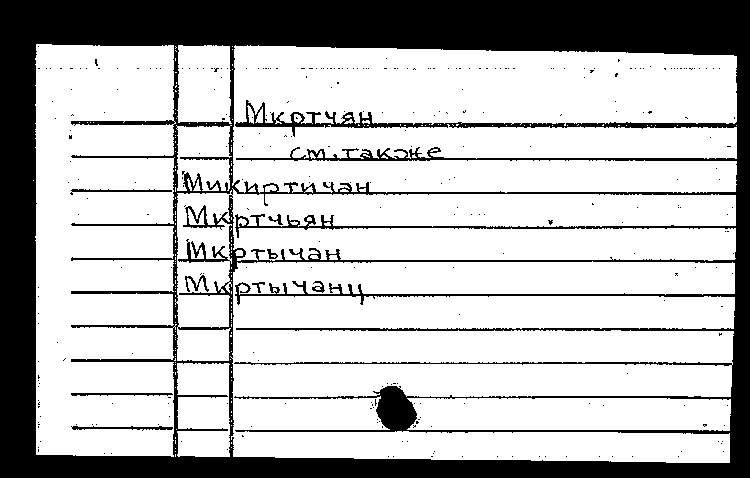 Мкртчян
см. также
Микиртичан
Мкртчьян
Мкртычан
Мкртычанц